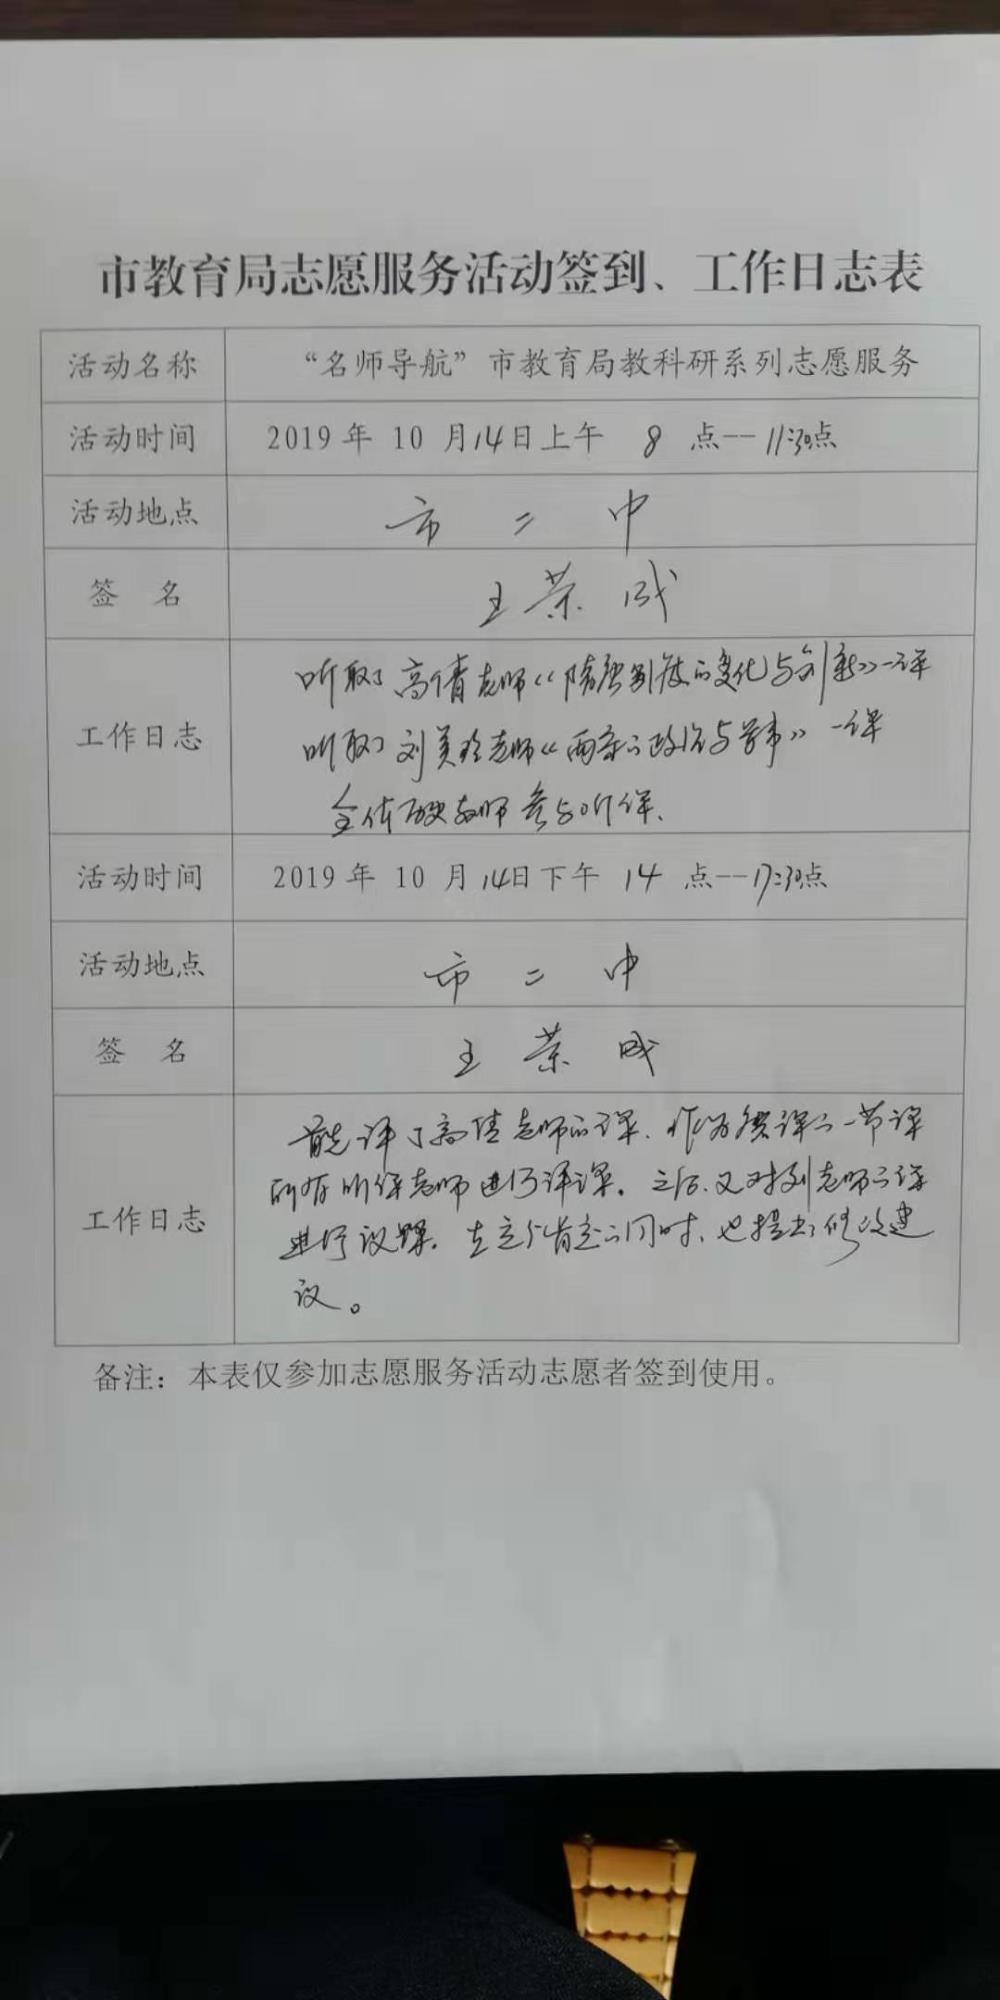 市教育局志愿服务活动签到、工作日志表
活动名称 “名师导航”市教育局教科研系列志愿服务
活动时间 2019年 10 月14日上午 8 点--11:30点
活动地点 市二中
签 名 王荣成
听取了高倩老师《隋唐制度的变化与创新》一课
工作日志 听取了刘美玲老师《两宋的政治与军事》一课
全体历史教师参与听课.
活动时间 2019年 10 月14日下午 14 点--17:30点
活动地点 市二中
签 名 王荣成
首先评了高倩老师的课.作为赛课的一节课
所有听课老师进行评课.之后.又对刘老师的课
工作日志 进行议课.在充分肯定的同时,也提出了修改建
议。
备注：本表仅参加志愿服务活动志愿者签到使用。